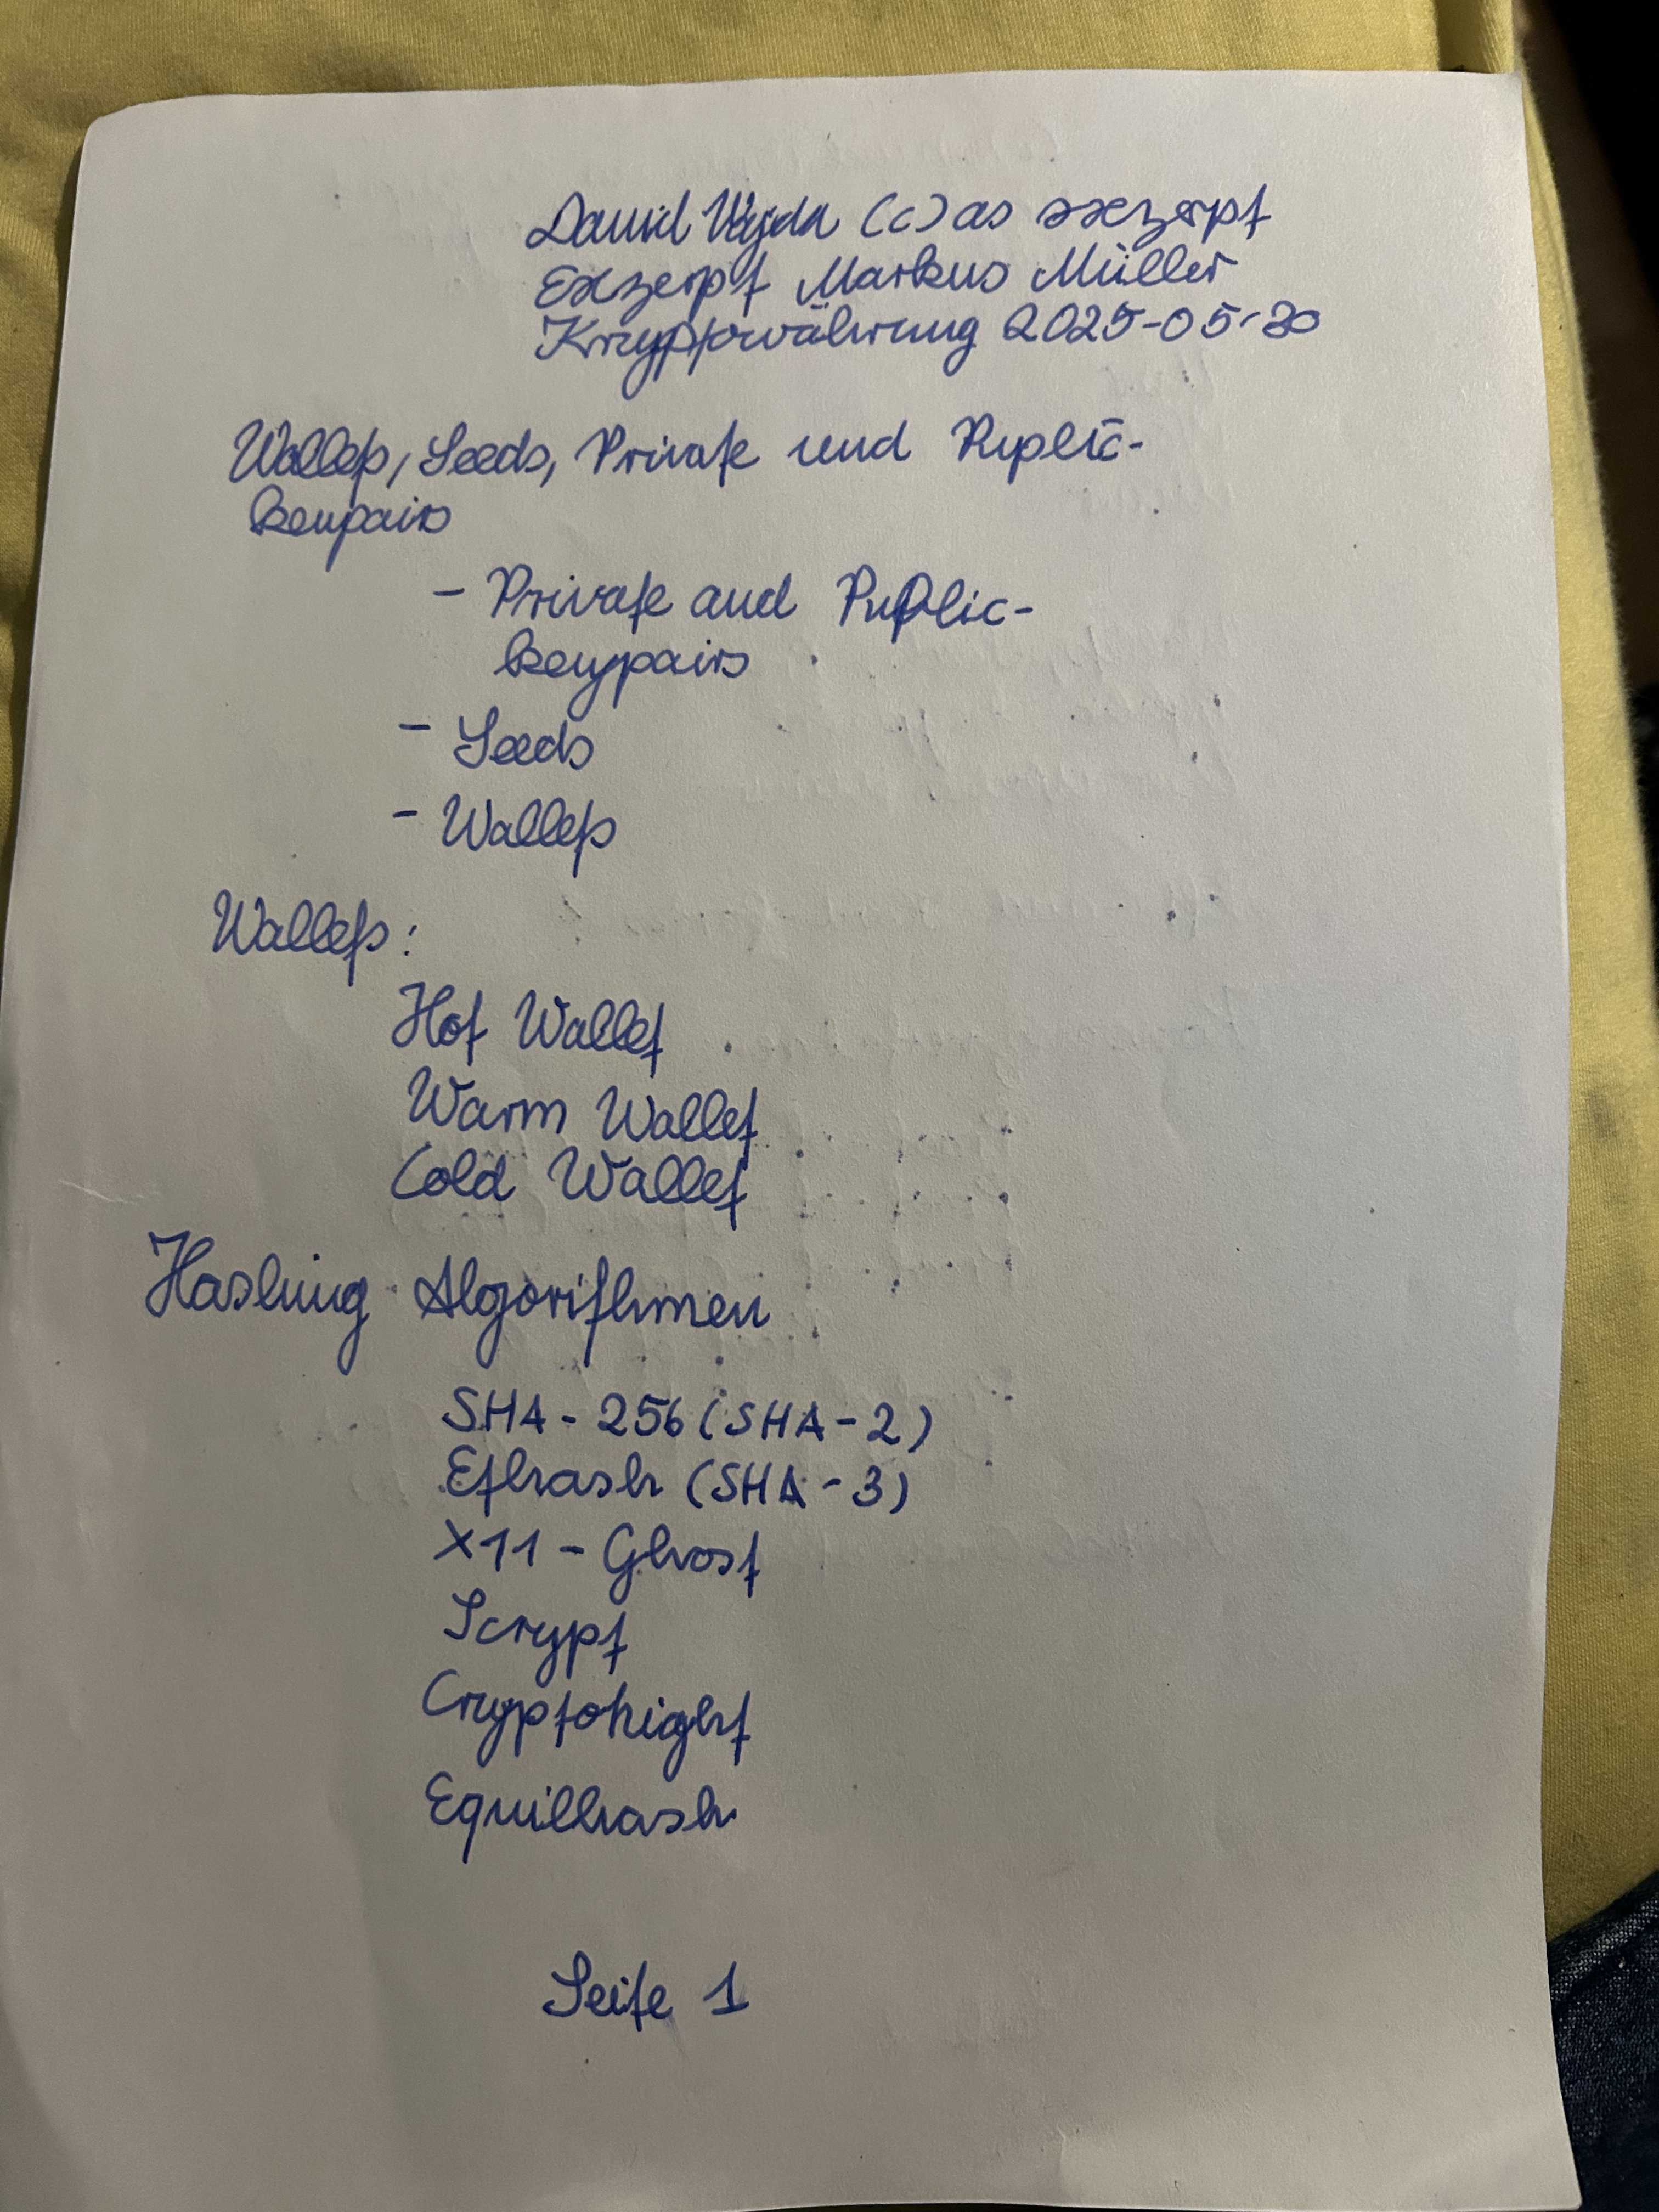 David Vajda (c) as exzerpt
Exzerpt Markus Müller
Kryptowährung 2025-05-30
Wallets, Seeds, Private und Puplic-
keypairs
- Private and Public-
keypairs
- Seeds
- Wallets
Wallets:
Hot Wallet
Warm Wallet
Cold Wallet
Hashing Algorithmen
SHA-256 (SHA-2)
Ethash (SHA-3)
X11-Ghost
Scrypt
Cryptonight
Equilhash
Seite 1